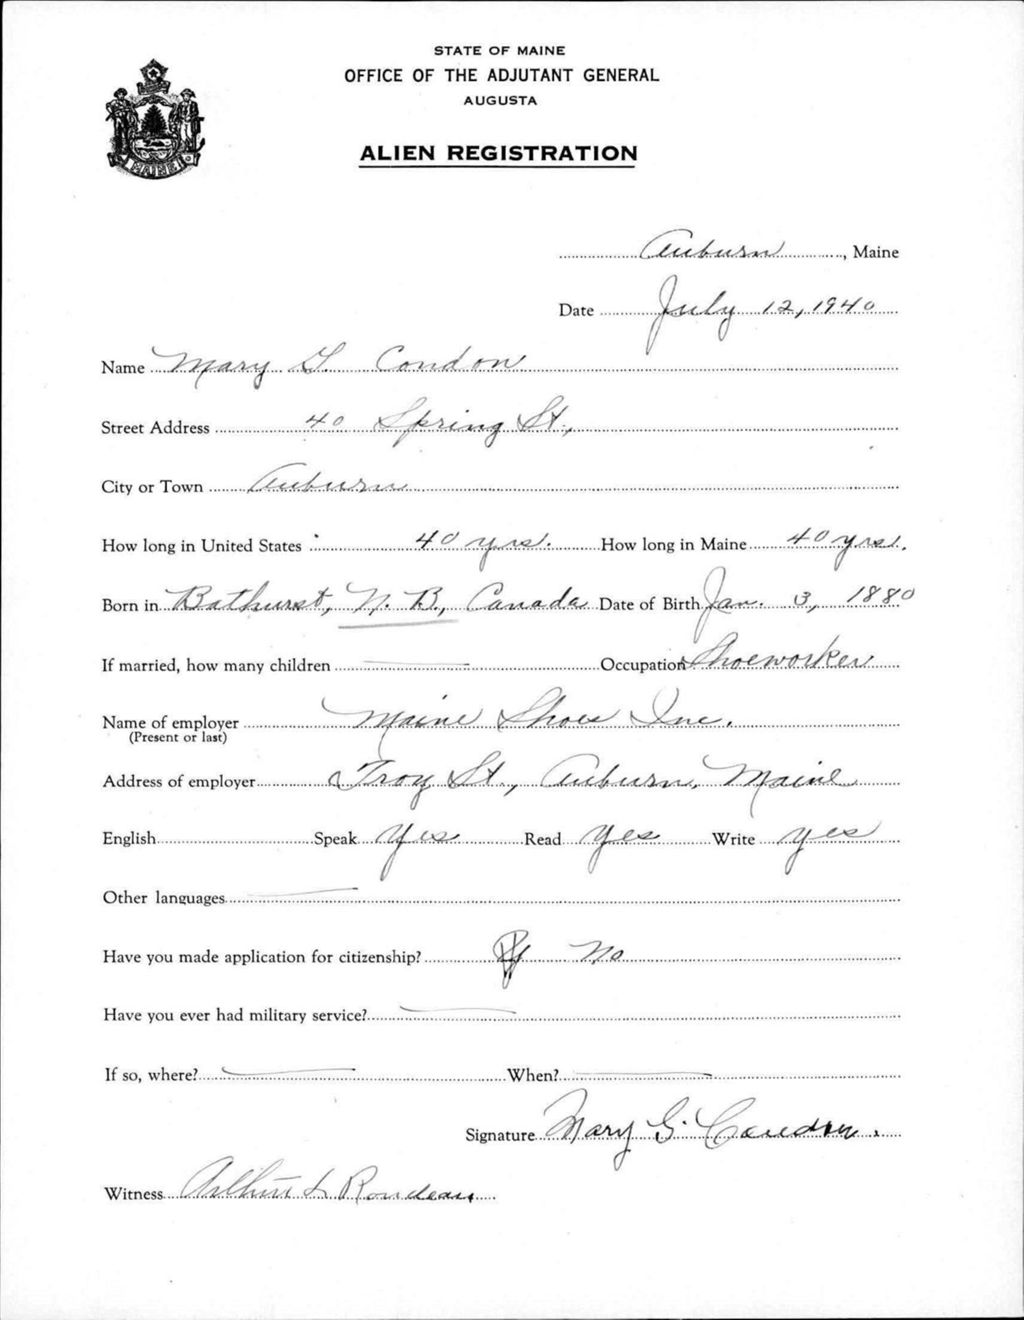 STATE OF MAINE
OFFICE OF THE ADJUTANT GENERAL
AUGUSTA
ALIEN REGISTRATION
MAINE
Auburn, Maine
Date July 12, 1940
Name Mary G. Condon
Street Address 40 Spring St.,
City or Town Auburn
How long in United States 40 yrs. How long in Maine 40 yrs.
Born in Bathurst, N. B., Canada Date of Birth Jan. 3, 1880
If married, how many children Occupation Shoeworker
Name of employer Maine Shoes Inc.
(Present or last)
Address of employer Troy St., Auburn, Maine
English Speak Yes Read Yes Write yes
Other languages
Have you made application for citizenship? No
Have you ever had military service?
If so, where? When?
Signature Mary G. Condon.
Witness Arthur L Rondeau